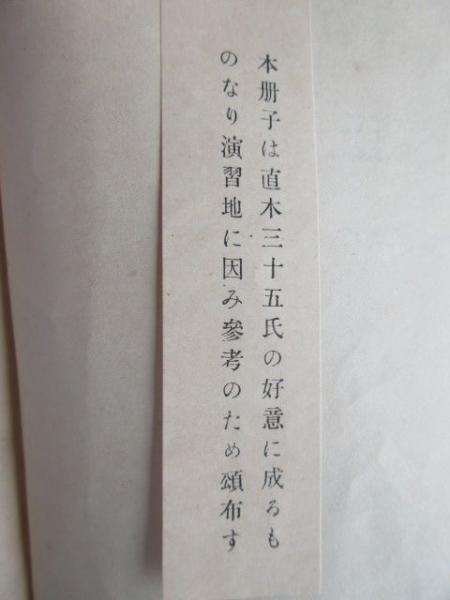 本册子は直木三十五氏の好意に成るも
のなり演習地に因み參考のため頒布す